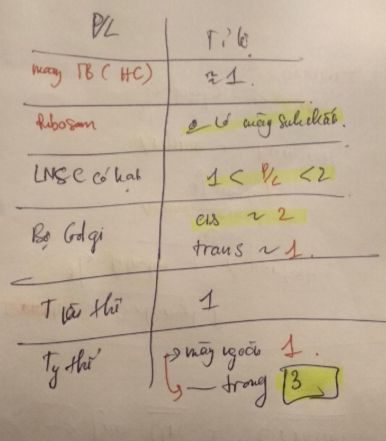 P/L Tỉ lệ
màng TB (HC) ≈ 1.
Ribosom màng sinh chất.
LNSC có hạt 1 < P/L < 2
Bộ Golgi cis ~ 2
trans ~ 1.
T thể 1
Ty thể → màng ngoài 1.
→ — trong 3